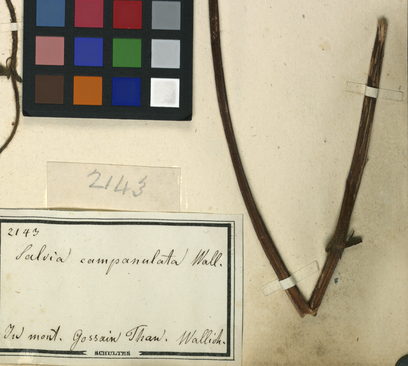 2143
2143
Salvia campanulata Wall.
In mont. Gossain Than. Wallich.
SCHULTES